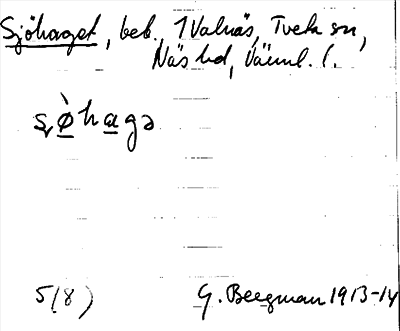 Sjöhaget, beb., 1 Valnäs, Tveta sn,
Näs hd, Värml. l.
ʂø̀hagə
5(8)
G. Bergman 1913-14